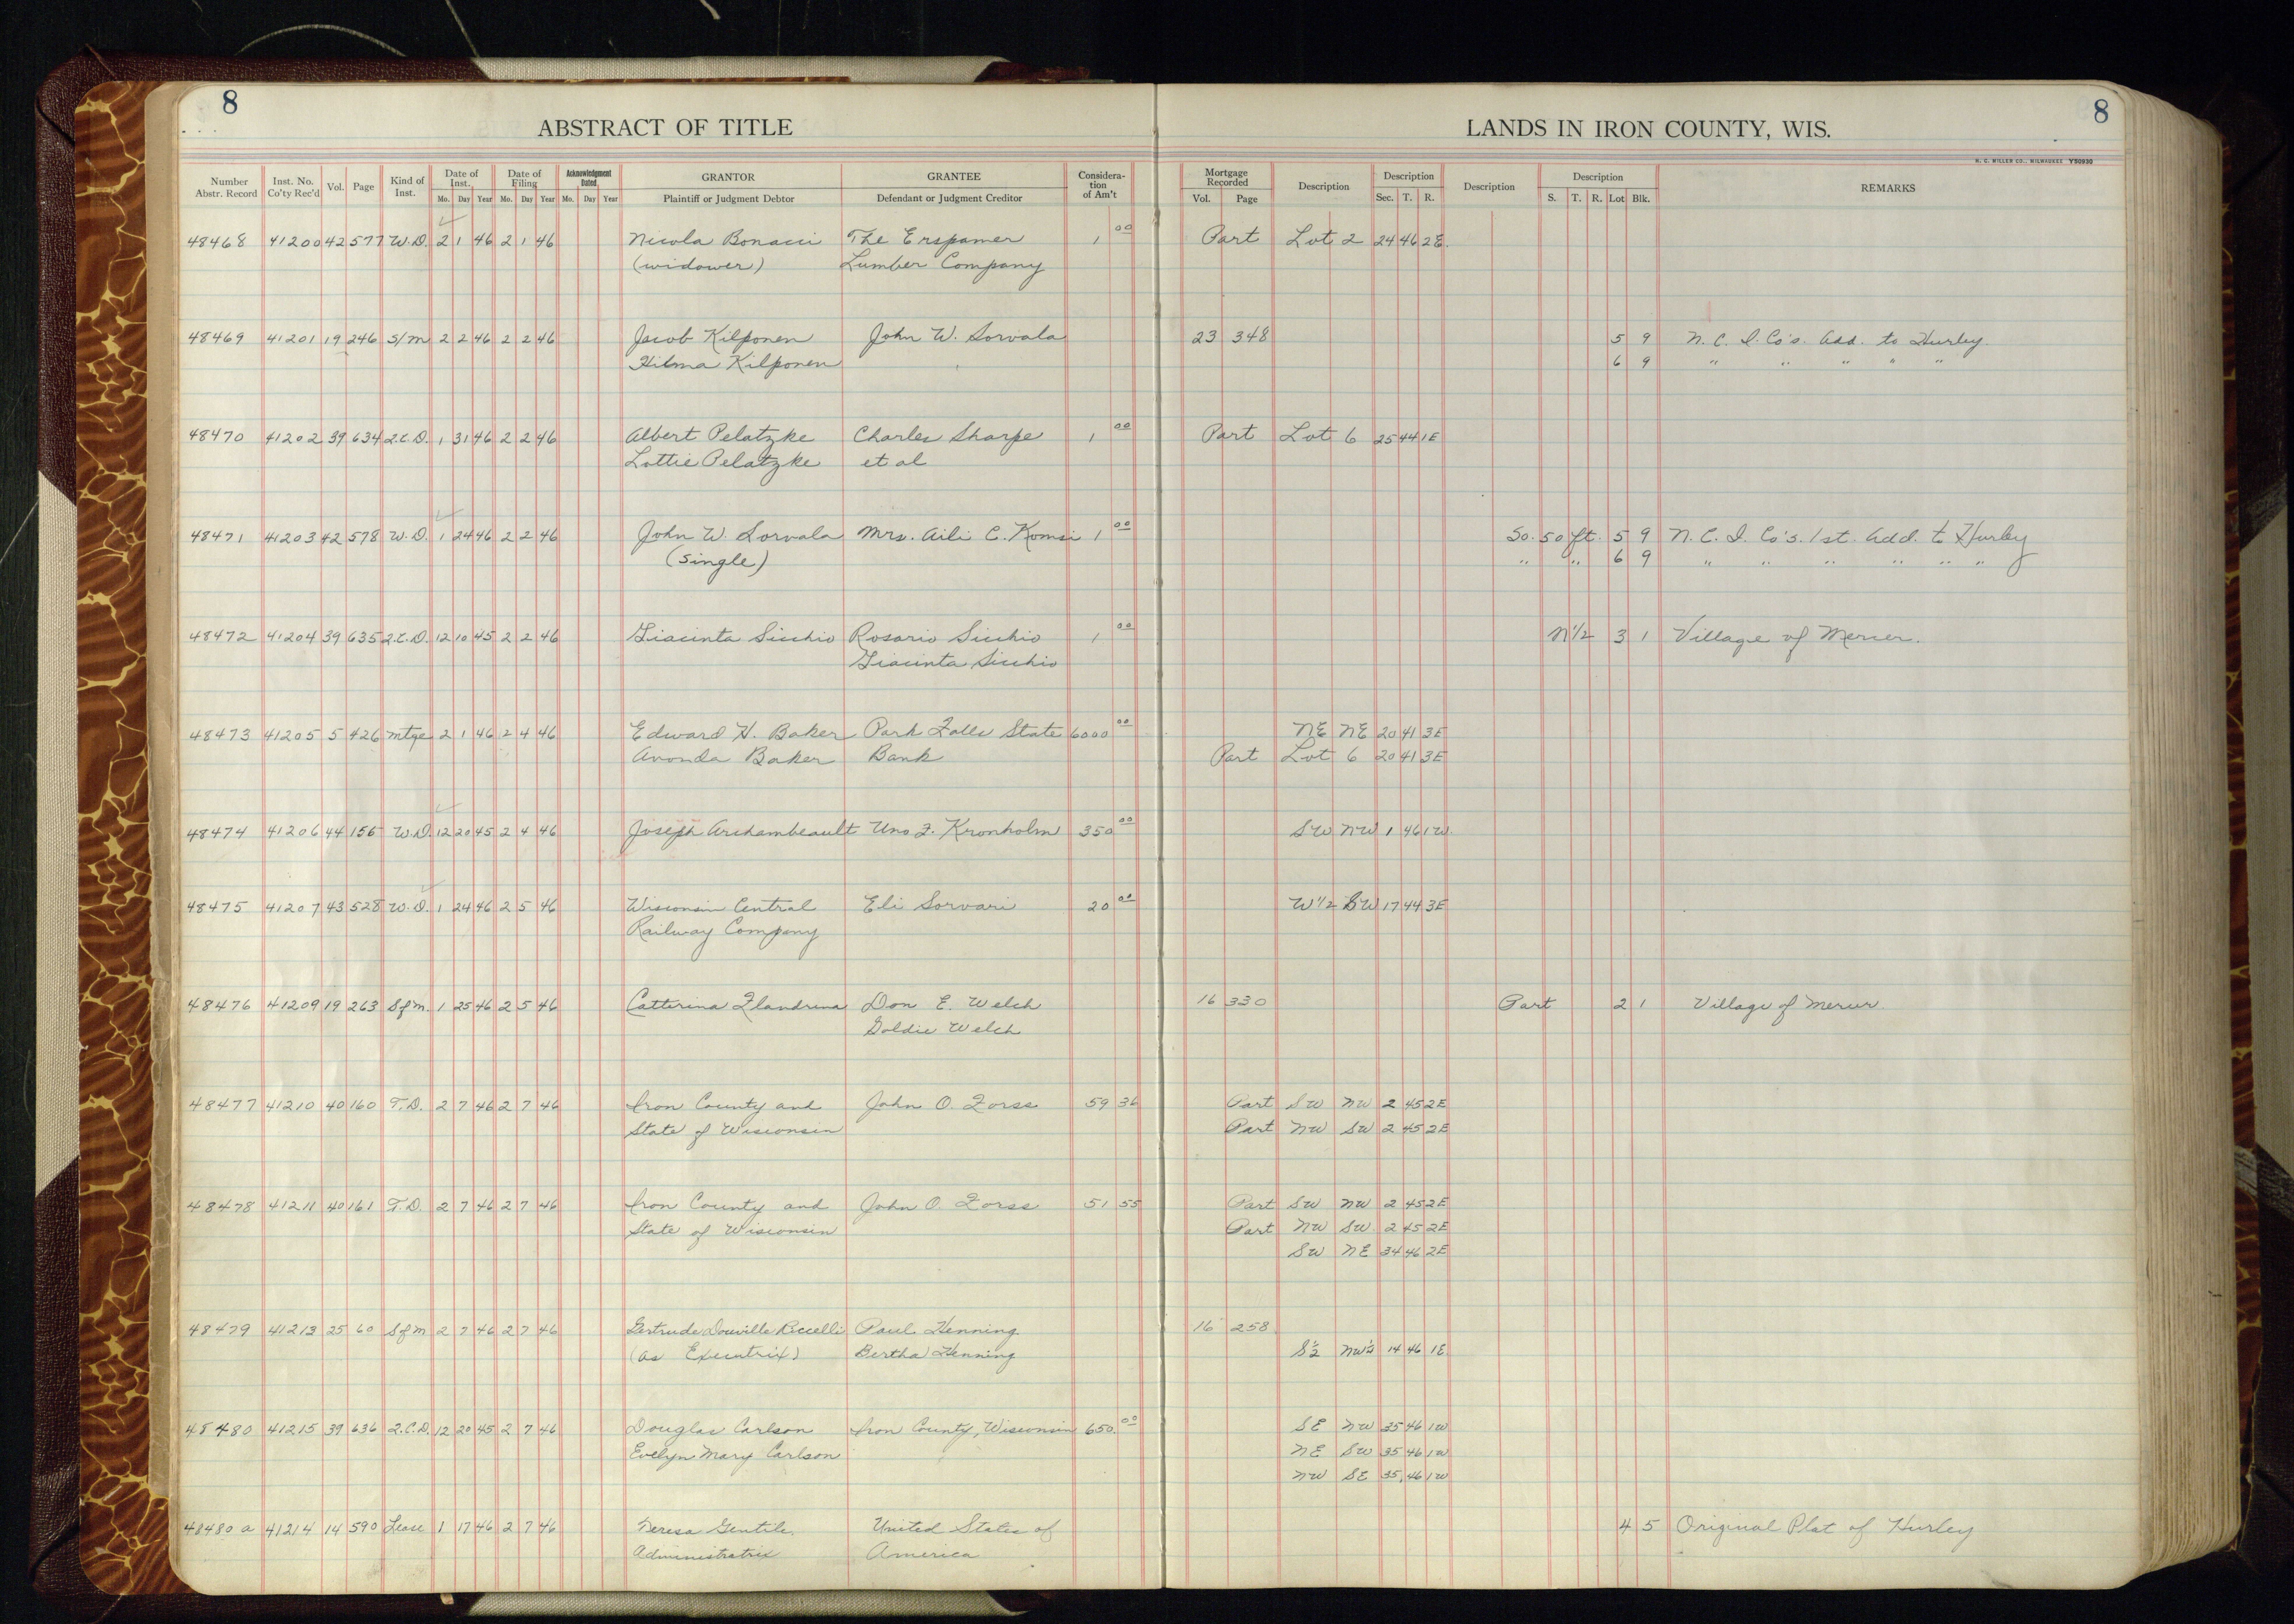 8
8
ABSTRACT OF TITLE
LANDS IN IRON COUNTY, WIS.
H. C. MILLER CO., MILWAUKEE Y50930
Number Abstr. Record Inst. No. Co'ty Rec'd Vol. Page Kind of Inst. Date of Inst. Date of Filing Acknowledgment Dated GRANTOR GRANTEE Consideration of Am't Mortgage Recorded Description Description Description Description REMARKS
Mo. Day Year Mo. Day Year Mo. Day Year Plaintiff or Judgment Debtor Defendant or Judgment Creditor Vol. Page Sec. T. R. S. T. R. Lot Blk.
48468 41200 42 577 W.D. 2 1 46 2 1 46 Nicola Bonacci The Erspamer 1 00 Part Lot 2 24 46 2E.
(widower) Lumber Company
48469 41201 19 246 S/m 2 2 46 2 2 46 Jacob Kilponen John W. Sorvala 23 348 5 9 N. C. I. Co's. Add. to Hurley.
Hilma Kilponen 6 9 " " " " "
48470 41202 39 634 2.C.D. 1 31 46 2 2 46 Albert Pelatzke Charles Sharpe 1 00 Part Lot 6 25 44 1E
Lottie Pelatzke et al
48471 41203 42 578 W.D. 1 24 46 2 2 46 John W. Sorvala Mrs. Aili C. Komsi 1 00 So. 50 ft. 5 9 N. C. I. Co's. 1st. Add. to Hurley
(single) " " 6 9 " " " " " "
48472 41204 39 635 2.C.D. 12 10 45 2 2 46 Giacinta Sicchio Rosario Sicchio 1 00 N1/2 3 1 Village of Mercer.
Giacinta Sicchio
48473 41205 5 426 mtge 2 1 46 2 4 46 Edward H. Baker Park Falls State 6000 00 NE NE 20 41 3E
Avonda Baker Bank Part Lot 6 20 41 3E
48474 41206 44 156 W.D. 12 20 45 2 4 46 Joseph Archambeault Uno F. Kronholm 350 00 SW NW 1 46 1W.
48475 41207 43 528 W.D. 1 24 46 2 5 46 Wisconsin Central Eli Sorvari 20 00 W1/2 SW 17 44 3E
Railway Company
48476 41209 19 263 Sfm. 1 25 46 2 5 46 Catterina Flandrena Don E. Welch 16 330 Part 2 1 Village of Mercer.
Goldie Welch
48477 41210 40 160 T.D. 2 7 46 2 7 46 Iron County and John O. Forss 59 36 Part SW NW 2 45 2E
State of Wisconsin Part NW SW 2 45 2E
48478 41211 40 161 T.D. 2 7 46 2 7 46 Iron County and John O. Forss 51 55 Part SW NW 2 45 2E
State of Wisconsin Part NW SW. 2 45 2E
SW NE 34 46 2E
48479 41213 25 60 Sfm 2 7 46 2 7 46 Gertrude Douville Riccelli Paul Henning 16 258
(as Executrix) Bertha Henning S1/2 NW1/4 14 46 1E
48480 41215 39 636 2.C.D. 12 20 45 2 7 46 Douglas Carlson Iron County, Wisconsin 650. 00 SE NW 35 46 1W
Evelyn Mary Carlson NE SW 35 46 1W
NW SE 35 46 1W
48480 a 41214 14 590 Lease 1 17 46 2 7 46 Teresa Gentile. United States of 4 5 Original Plat of Hurley
Administratrix America